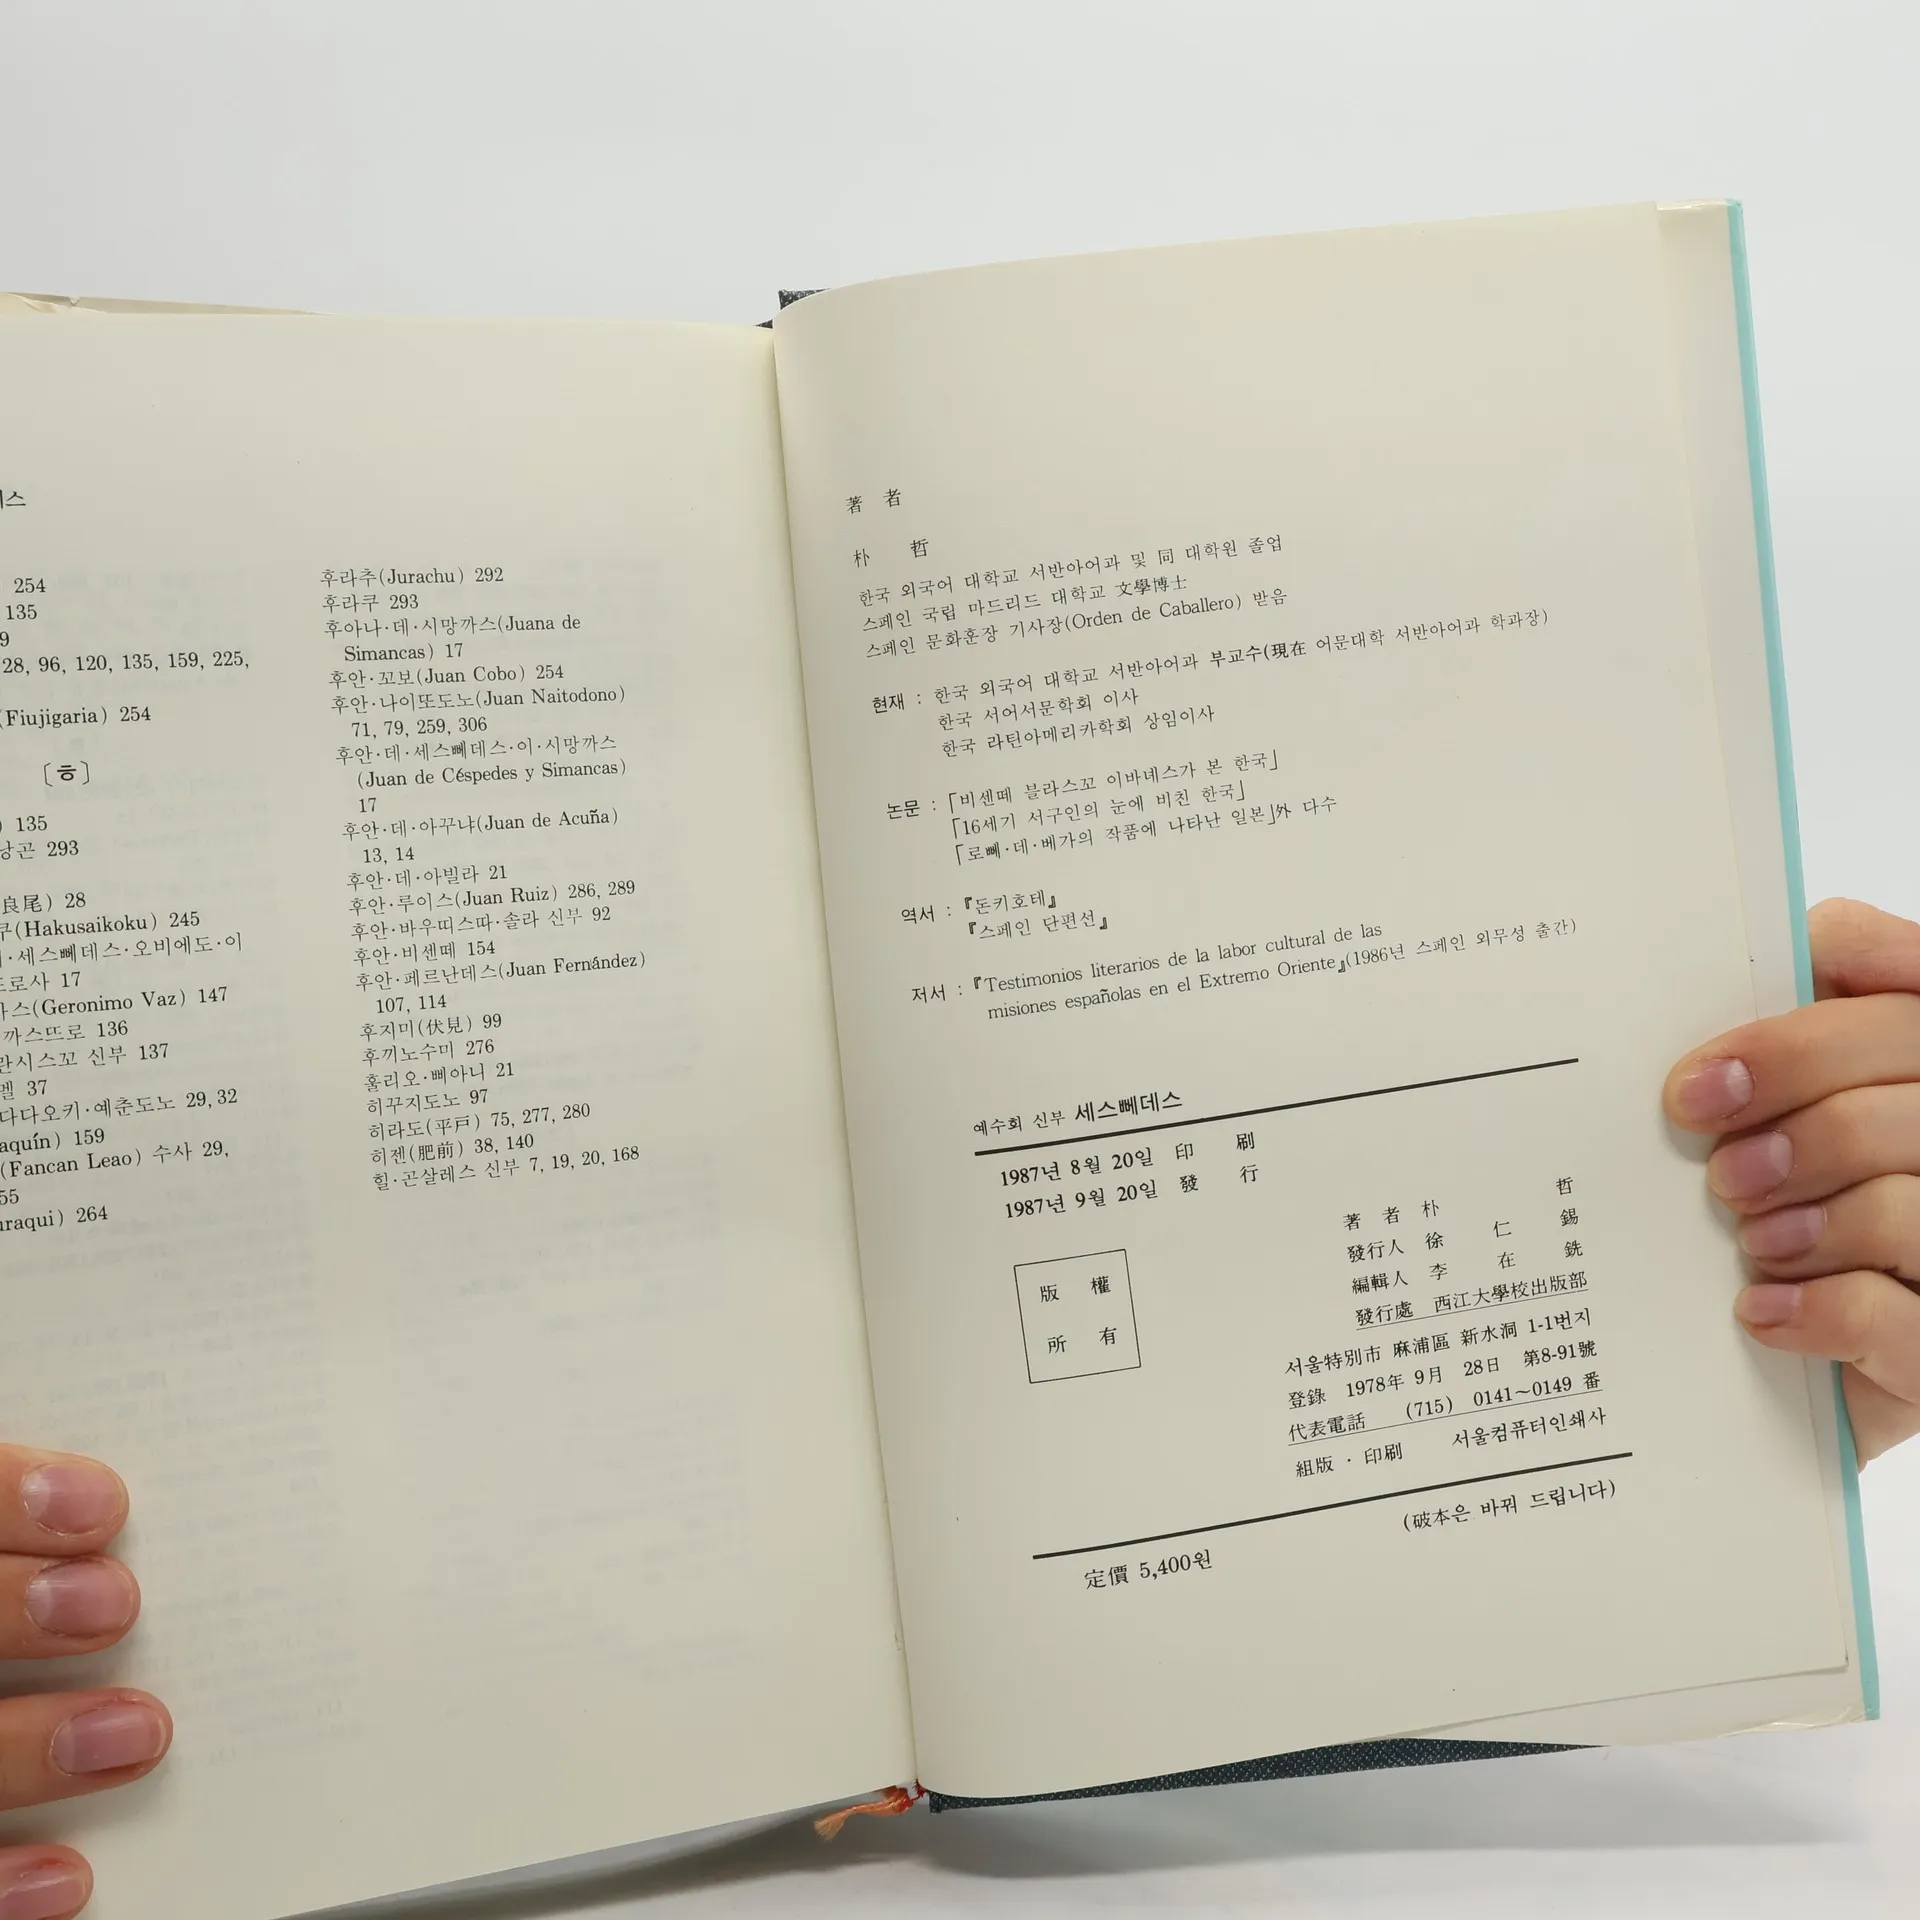 254
135
9
28, 96, 120, 135, 159, 225,
(Fiujigaria) 254
〔ㅎ〕
135
낭곤 293
良尾) 28
쿠(Hakusaikoku) 245
·세스뻬데스·오비에도·이
로사 17
스(Geronimo Vaz) 147
까스뜨로 136
란시스꼬 신부 137
벨 37
다다오키·예춘도노 29, 32
aquín) 159
(Fancan Leao) 수사 29,
55
uraqui) 264
후라추(Jurachu) 292
후라쿠 293
후아나·데·시망까스(Juana de
Simancas) 17
후안·꼬보(Juan Cobo) 254
후안·나이또도노(Juan Naitodono)
71, 79, 259, 306
후안·데·세스뻬데스·이·시망까스
(Juan de Céspedes y Simancas)
17
후안·데·아꾸냐(Juan de Acuña)
13, 14
후안·데·아빌라 21
후안·루이스(Juan Ruiz) 286, 289
후안·바우띠스따·솔라 신부 92
후안·비센떼 154
후안·페르난데스(Juan Fernández)
107, 114
후지미(伏見) 99
후끼노수미 276
훌리오·삐아니 21
히꾸지도노 97
히라도(平戸) 75, 277, 280
히젠(肥前) 38, 140
힐·곤살레스 신부 7, 19, 20, 168
著 者
朴 哲
한국 외국어 대학교 서반아어과 및 同 대학원 졸업
스페인 국립 마드리드 대학교 文學博士
스페인 문화훈장 기사장(Orden de Caballero) 받음
현재 : 한국 외국어 대학교 서반아어과 부교수(現在 어문대학 서반아어과 학과장)
한국 서어서문학회 이사
한국 라틴아메리카학회 상임이사
논문 : 「비센떼 블라스꼬 이바녜스가 본 한국」
「16세기 서구인의 눈에 비친 한국」
「로뻬·데·베가의 작품에 나타난 일본」外 다수
역서 : 『돈키호테』
『스페인 단편선』
저서 : 『Testimonios literarios de la labor cultural de las
misiones españolas en el Extremo Oriente』(1986년 스페인 외무성 출간)
예수회 신부 세스뻬데스
1987년 8월 20일 印 刷
1987년 9월 20일 發 行
版 權
所 有
著 者 朴 哲
發行人 徐 仁 錫
編輯人 李 在 銑
發行處 西江大學校出版部
서울特別市 麻浦區 新水洞 1-1번지
登錄 1978年 9月 28日 第8-91號
代表電話 (715) 0141~0149 番
組版 · 印刷 서울컴퓨터인쇄사
(破本은 바꿔 드립니다)
定價 5,400원